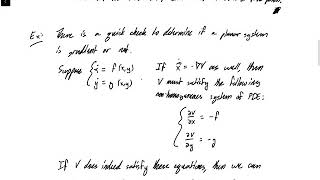 Ex: There is a quick check to determine if a planar system
is gradient or not.
Suppose { ẋ = f(x,y) If ẋ = -∇V as well, then
ẏ = g(x,y) V must satisfy the following
nonhomogeneous system of PDE:
{ ∂V/∂x = -f
∂V/∂y = -g
If V does indeed satisfy these equations, then we can